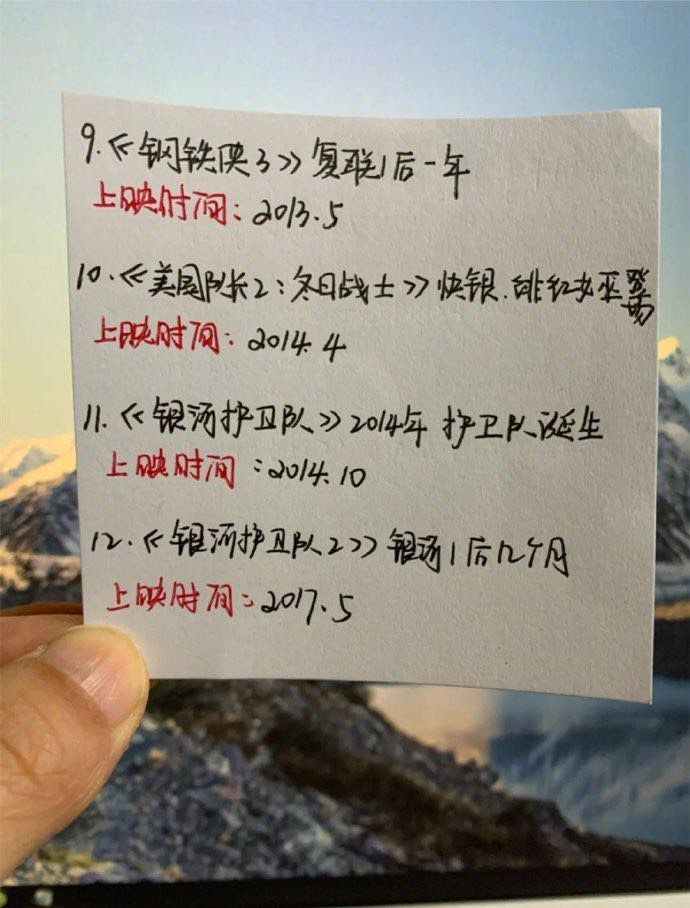 9.《钢铁侠3》复联1后一年
上映时间:2013.5
10.《美国队长2:冬日战士》快银.绯红女巫登场
上映时间:2014.4
11.《银河护卫队》2014年 护卫队诞生
上映时间:2014.10
12.《银河护卫队2》银河1后几个月
上映时间:2017.5